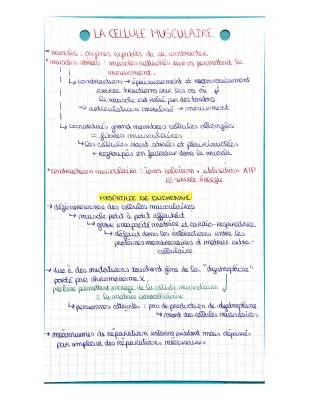 LA CELLULE MUSCULAIRE
muscles : organes capables de se contracter
muscles striés : muscles rattachés aux os permettant le
mouvement.
↳ contraction → épaississement et raccourcissement
exerce tractions sur les os où
le muscle est relié par des tendons
⇒ articulation mobilisé → mouvement
↳ constitués grand nombres cellules allongées
= fibres musculaires
↳ les cellules sont striées et plurinucléées
+ regroupés en faisceau dans le muscle
contraction musculaire : ions calcium + utilisation ATP
source énergie
MYOPATHIE DE DUCHENNE
→ dégénérescence des cellules musculaires
→ muscle petit à petit affaiblit
↳ grave incapacité motrice et cardio-respiratoire
↳ défaut dans les interactions entre les
protéines membranaires et matrice extra-
cellulaire
→ due à des mutations touchant gène de la "dystrophine"
porté par chromosome X.
protéine permettant ancrage de la cellule musculaire
à la matrice extracellulaire
↳ personnes atteints : pas de production de dystrophine
↳ mort des cellules musculaires
→ mécanismes de réparation interne existent mais dépassés
par ampleur des réparations nécessaires